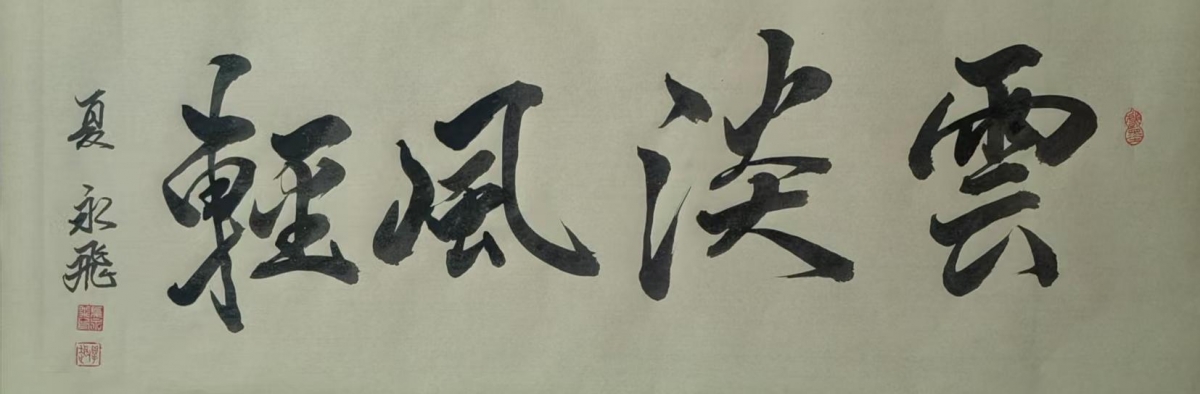 雲淡風輕
夏 永飛